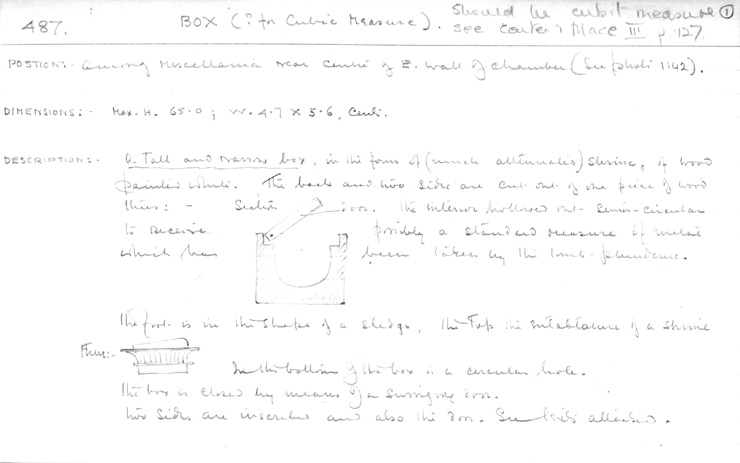 487.
BOX (? for Cubic Measure).
Should be cubit measure ①
See Carter & Mace III p 127.
POSITION:- Among Miscellania near centre of E. wall of chamber (See photo 1142).
DIMENSIONS:- Max. H. 65.0; W. 4.7 X 5.6, Cents.
DESCRIPTION:- A Tall and narrow box, in the form of (much attenuated) Shrine, of wood
painted white. The back and two sides are cut out of one piece of wood
thus:- Section door. The interior hollowed out semi-circular
to receive possibly a standard measure of metal
which has been taken by the tomb-plunderers.
The foot is in the shape of a sledge, the Top the entablature of a shrine
Thus:-
In the bottom of the box is a circular hole.
The box is closed by means of a swinging door.
Two sides are inscribed and also the door. See texts attached.